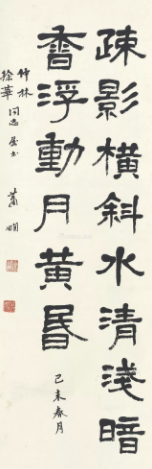 疎影橫斜水清淺暗
香浮動月黃昏
己未春月
竹林
徐華
同志
蕭嫻